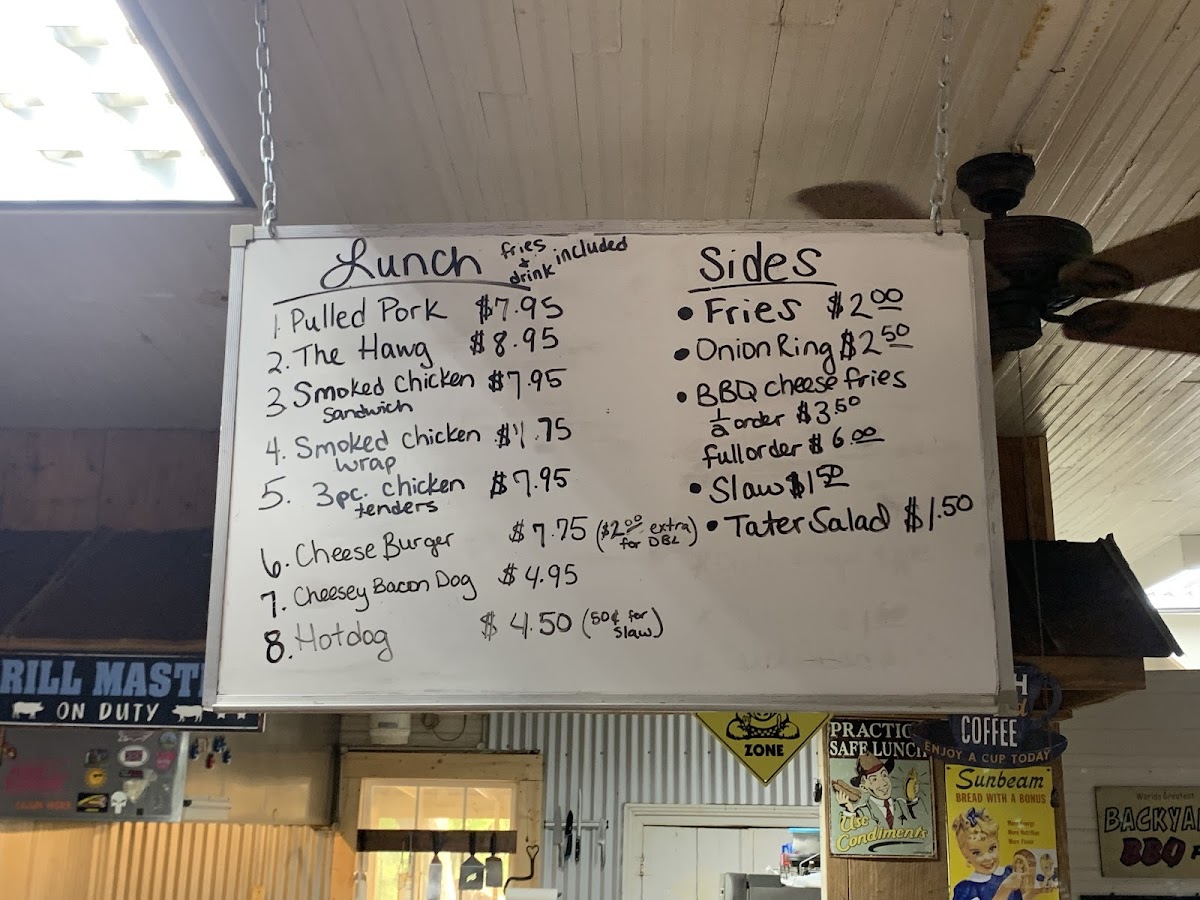 Lunch fries & drink included
1. Pulled Pork $7.95
2. The Hawg $8.95
3 Smoked Chicken $7.95
Sandwich
4. Smoked Chicken .75
wrap
5. 3pc. chicken $7.95
tenders
6. Cheese Burger $7.75 ($2.00 extra for DBL)
7. Cheesey Bacon Dog $4.95
8. Hotdog $4.50 (50¢ for Slaw)
Sides
• Fries $2.00
• Onion Ring $2.50
• BBQ cheese fries
1/2 order $3.50
full order $6.00
• Slaw $1.50
• Tater Salad $1.50
RILL MAST
ON DUTY
ZONE
PRACTIC
SAFE LUNCH
Use
Condiments
H
COFFEE
ENJOY A CUP TODAY
Sunbeam
BREAD WITH A BONUS
More Energy
More Nutrition
More Flavor
Worlds Greatest
BACKYA
BBQ